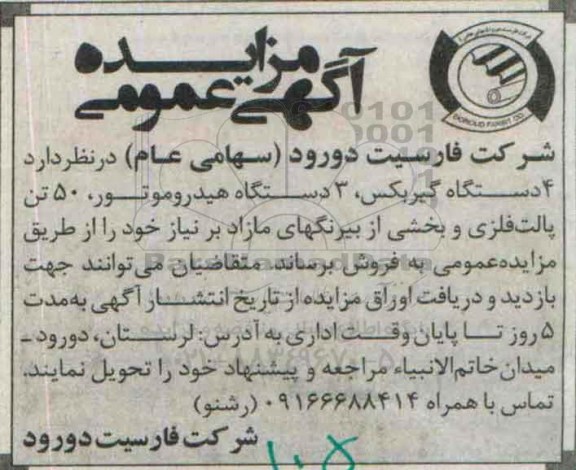 آگهی مزایده عمومی
DOROUD FARSIT CO.
شرکت فارسیت دورود (سهامی عام) درنظر دارد
۴دستگاه گیربکس، ۳ دستگاه هیدروموتور، ۵۰ تن
پالت‌فلزی و بخشی از بیرنگهای مازاد بر نیاز خود را از طریق
مزایده‌عمومی به فروش برساند. متقاضیان می‌توانند جهت
بازدید و دریافت اوراق مزایده از تاریخ انتشار آگهی به‌مدت
۵ روز تا پایان وقت اداری به آدرس: لرستان، دورود ـ
میدان خاتم‌الانبیاء مراجعه و پیشنهاد خود را تحویل نمایند.
تماس با همراه ۰۹۱۶۶۶۸۸۴۱۴ (رشنو)
شرکت فارسیت دورود